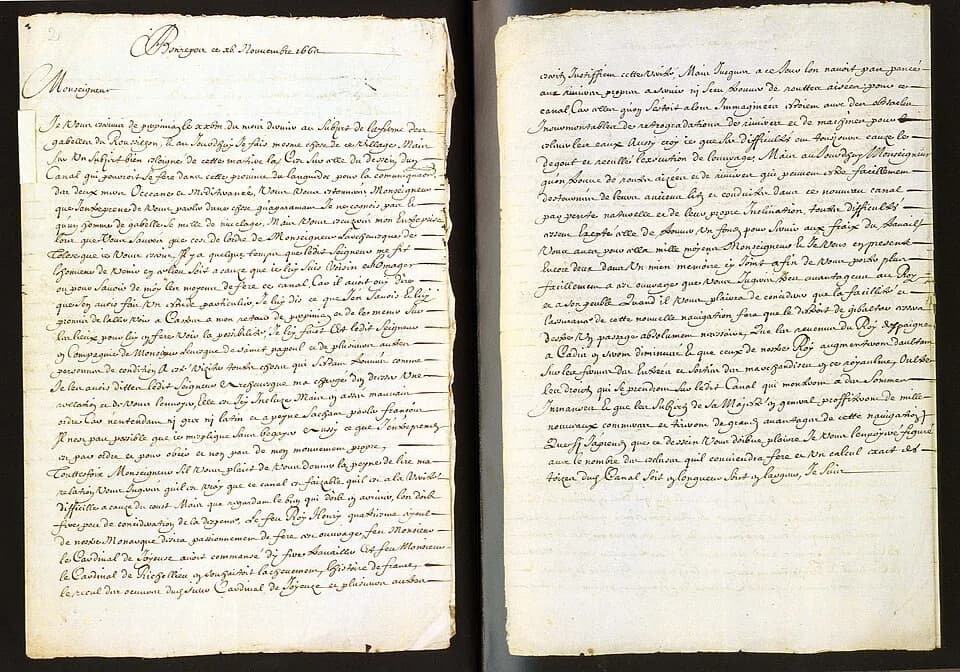 Bonrepos ce xb. Nouvembre 1662
Monseigneur
Je vous escrivis de perpinian le xxbm. du mois dernier au subject de la ferme des
gabelles du Roussillon, et au Jourdhuy Je fais mesme chose de ce village, Mais
sur un subject bien esloigné de cette matiere la, C'es sur celle du dessein dun
Canal qui pourroit se fere dans cette province du languedoc pour la communiquation
des deux mers Occeane et Mediterranée, Vous vous estonneres Monseigneur
que J'entreprene de vous parler dune chose qu'aparament Je ne cognois pas et
qu'un homme de gabelle se mesle de nivelage, Mais vous excuzeres mon entreprise
lors que vous saures que c'es de l'ordre de Monseigneur l'archevesque de
Tolose que Je vous escris, Il y a quelque temps que ledit Seigneur me fit
l'honneur de venir en ce lieu, soit a cause que Je luy suis voisin et homager
ou pour savoir de moy les moyens de fere ce canal, Car il avoit ouy dire
que J'en avois fait un estude particulier, Je luy dis ce que J'en savois et luy
promis de l'aller voir a Castres a mon retour de perpinian et de le mener sur
les lieux pour luy en fere voir la possibilité, Je l'ay fait et ledit Seigneur
en Compagnie de Monsieur levesque de Saint papoul et de plusieurs autres
personnes de condition, A esté visiter toutes choses qui s'estant trouvées comme
Je les avois dittes, ledit Seigneur archevesque m'a chargé d'en dresser une
relation et de vous l'envoyer, Elle es Icy Incluze Mais en asses mauvais
ordre Car n'entendant ni grec ni latin et a peyne sachant parler francois
Il n'es pas possible que je m'explique sans begayer, Aussy ce que J'entreprens
es par ordre et pour obeir et non pas de mon mouvement propre,
Touttesfois Monseigneur s'il vous plaict de vous donner la peyne de lire ma
relation Vous Jugeres qu'il es vray que ce canal es faizable, qu'il es a la verité
difficille a cause du coust Mais que regardant le bien qui doibt en arriver, l'on doibt
fere peu de consideration de la despence, Le feu Roy Henry quatriesme ayeul
de nostre Monarque desira passionnement de fere cet ouvrage, feu Monsieur
le Cardinal de Joyeuse avoit commansé d'y fere travailler Et feu Monsieur
le Cardinal de Richellieu en souhaitoit l'achevement, l'histoire de france,
le recul des oeuvres dudit Sieur Cardinal de Joyeuze et plusieurs autres
escrits Justiffient cette verité, Mais Jusques a ce Jour l'on n'avoit pas pancé
aux rivieres propres a servir ni sceu trouver de routtes aisées pour ce
canal Car celles qu'on s'estoit alors Immaginées estoient avec des obstacles
Insurmontables de retrogradations de rivieres et de machines pour
eslever les eaux, Aussy croy Je que ces difficultés ont tousjours cauzé le
degout et recullé l'execution de l'ouvrage, Mais au Jourdhuy Monseigneur
qu'on treuve de routes aizées et de rivieres qui peuvent estre facillement
destournées de leurs anciens lits et conduites dans ce nouveau canal
par pente naturelle et de leur propre Inclination, toutes difficultés
cessent excepté celle de trouver un fonds pour servir aux fraix du travail
Vous aves pour cella mille moyens Monseigneur, Et Je vous en presente
Encore deux dans un mien memoire cy Joint afin de vous porter plus
facillement a cet ouvrage que vous Jugeres tres avantageux au Roy
et a son peuble Quand il vous plairra de considerer que la facillité et
l'assurance de cette nouvelle navigation fera que le destroit de gibaltar cessera
d'estre un passage absolument necessaire, Que les revenus du Roy d'Espaigne
a Cadis en seront diminués Et que ceux de nostre Roy augmenteront d'autant
sur les fermes des Entrées et sorties des marchandises en ce royaulme, Oultre
les droits qui se prendront sur ledit Canal qui monteront a des sommes
Immanses, Et que les subjects de Sa Majesté en general proffiteront de mille
nouveaux commerces et tireront de grands avantages de cette navigation,
Que sy J'aprens que ce dessein vous doibve plaire, Je vous l'envoyeré figuré
avec le nombre des escluses qu'il conviendra fere et un calcul exact des
toizes dudit Canal soit en longueur soit en largeur, Je suis